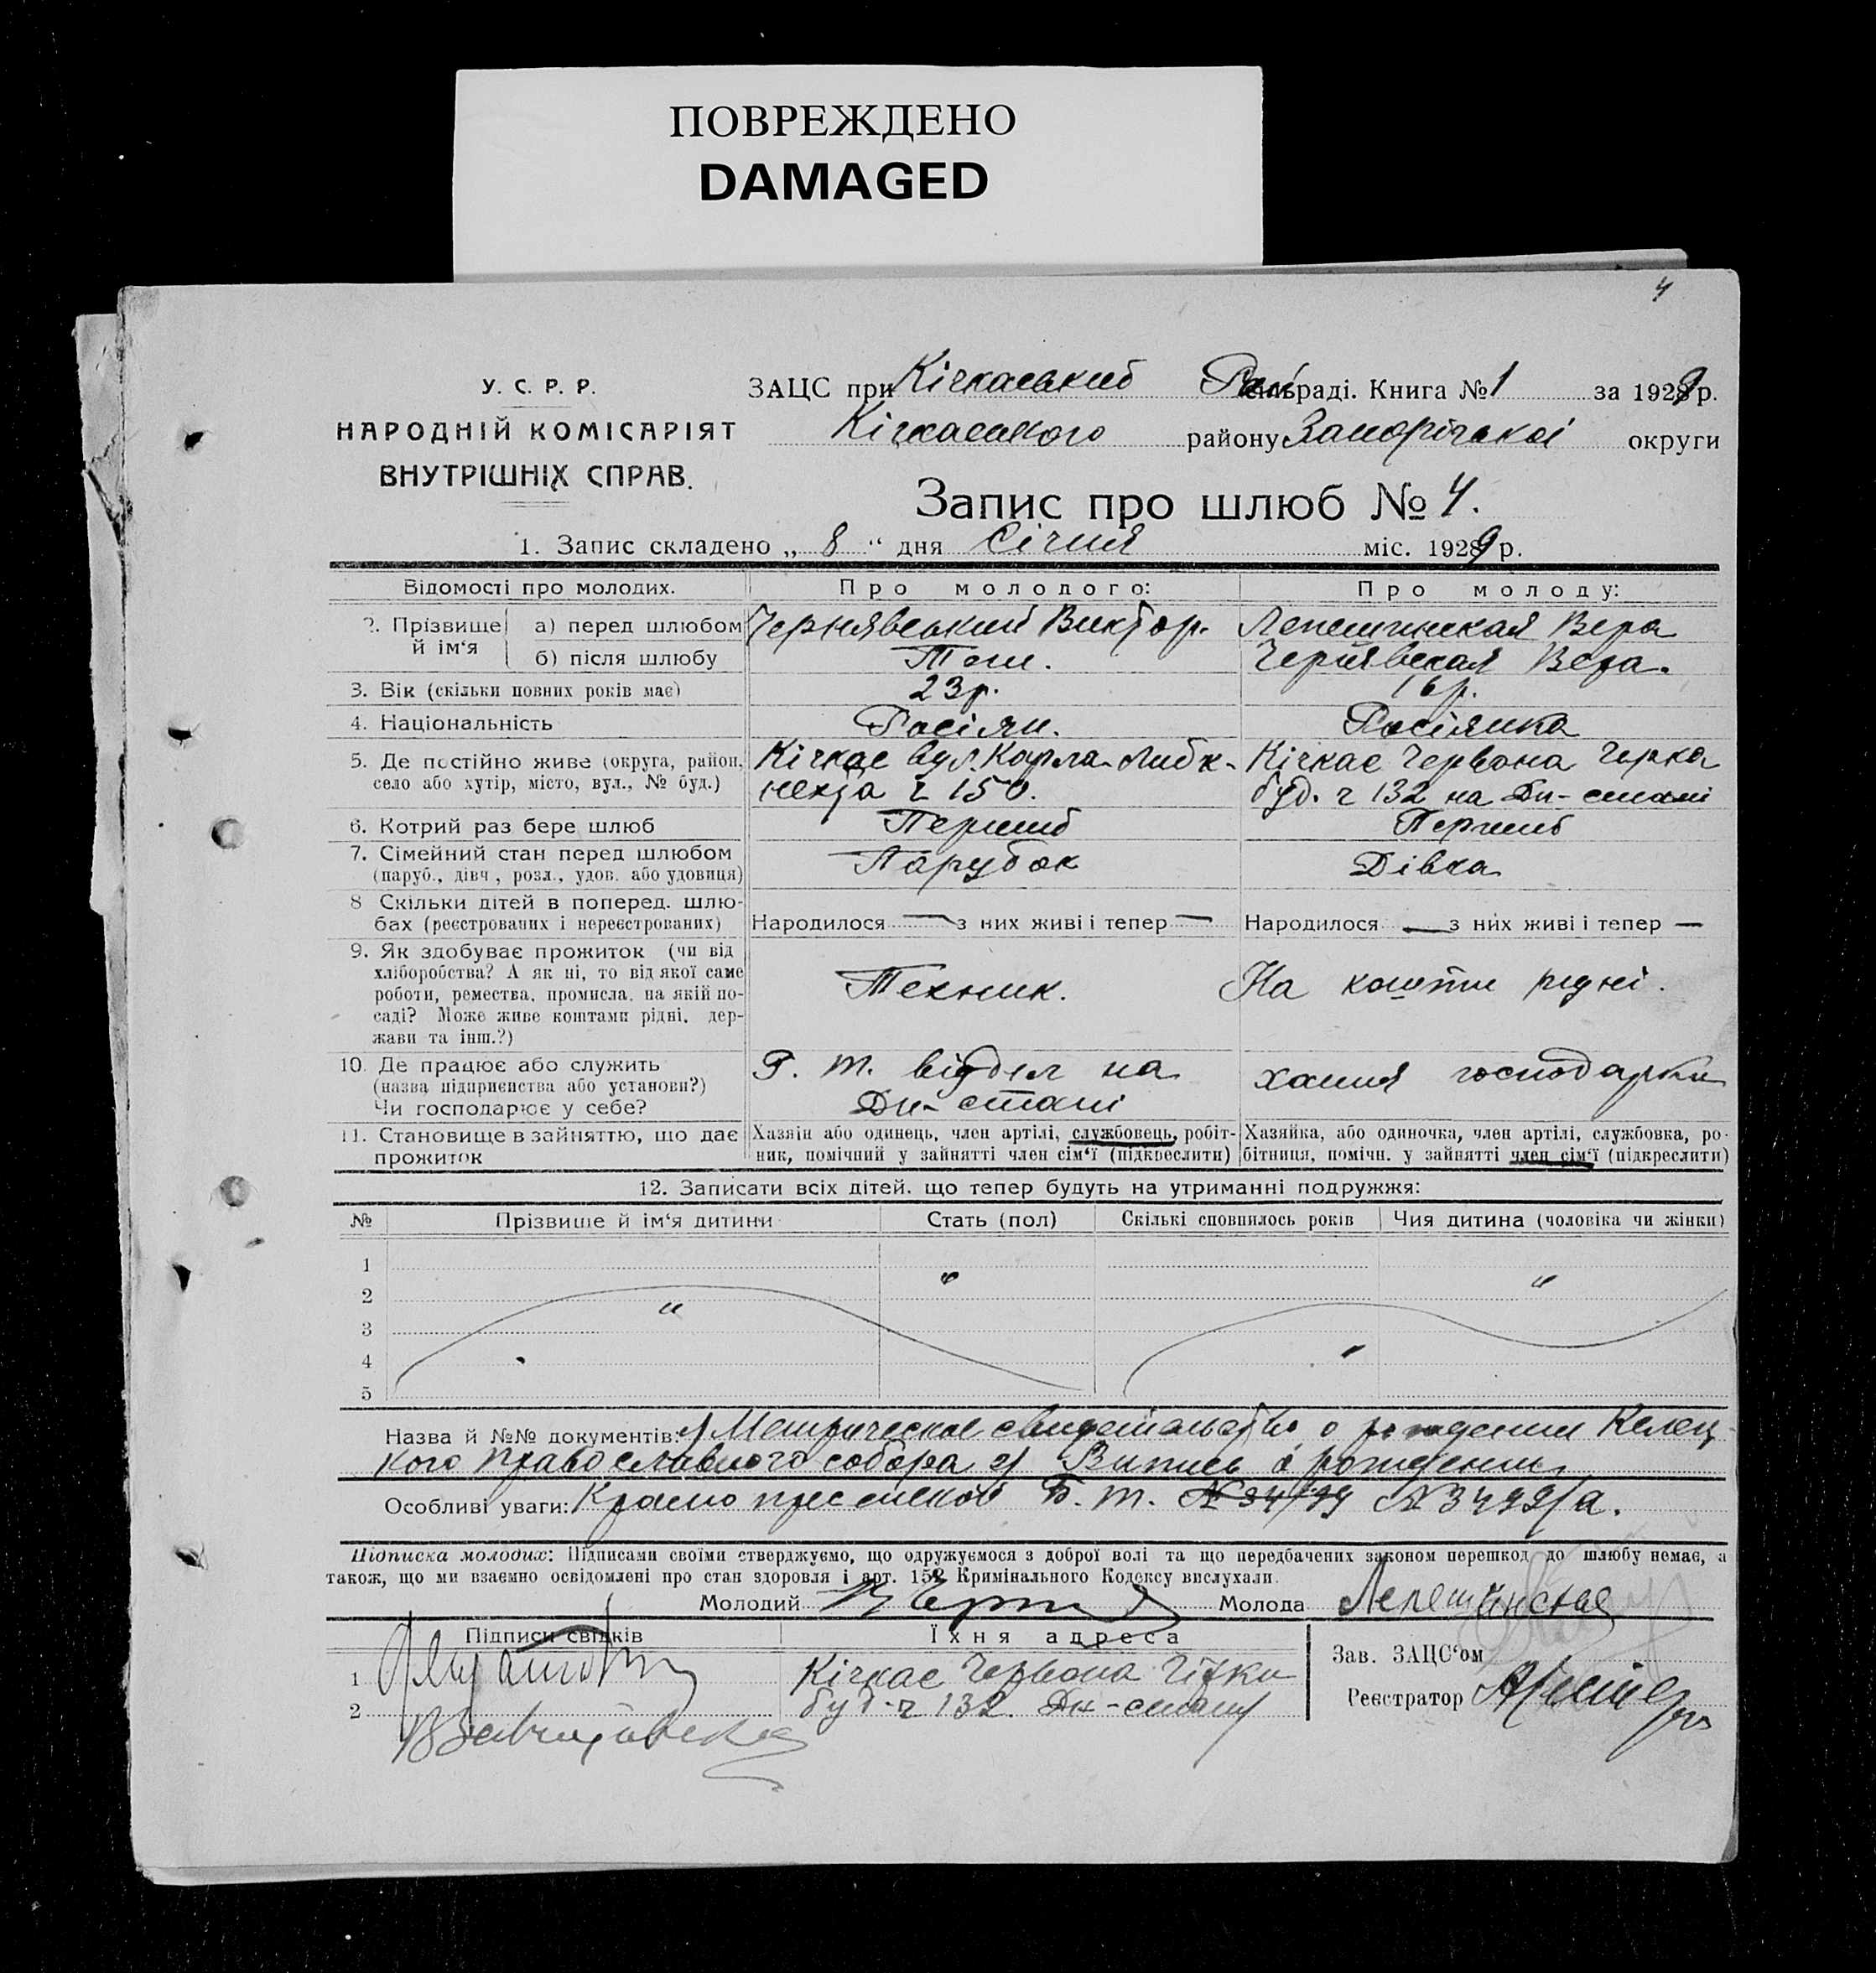 ПОВРЕЖДЕНО
DAMAGED
4
У. С. Р. Р.
НАРОДНІЙ КОМІСАРІЯТ
ВНУТРІШНІХ СПРАВ.
ЗАЦС при Кічкаський раді. Книга № 1 за 1929 р.
Кічкаського району Запорізської округи
Запис про шлюб № 4.
1. Запис складено „ 8 “ дня Січня міс. 1929 р.
Відомості про молодих. Про молодого: Про молоду:
2. Прізвище й ім‘я а) перед шлюбом Чернявський Виктор. Лепешинская Вера
б) після шлюбу Тоже. Чернявская Вера.
3. Вік (скільки повних років має) 23 р. 16 р.
4. Національність Росіян. Росіянка
5. Де постійно живе (округа, район, Кічкас вул. Карла-Либк- Кічкас Червона
село або хутір, місто, вул., № буд.) нехта ч 150. буд. ч 132 на Дн-стані
6. Котрий раз бере шлюб Перший Перший
7. Сімейний стан перед шлюбом Парубок Дівка
(паруб., дівч., розл., удов. або удовиця)
8 Скільки дітей в поперед. шлю-
бах (реєстрованих і нереєстрованих) Народилося — з них живі і тепер — Народилося — з них живі і тепер —
9. Як здобуває прожиток (чи від
хліборобства? А як ні, то від якої саме
роботи, ремества, промисла, на якій по- Техник. На кошти рідні.
саді? Може живе коштами рідні, дер-
жави та інш.?)
10. Де працює або служить Р. т. відділ на господарка
(назва підприємства або установи?) Дн-стані
Чи господарює у себе?
11. Становище в зайняттю, що дає Хазяїн або одинець, член артілі, службовець, робіт- Хазяйка, або одиночка, член артілі, службовка, ро-
прожиток ник, помічний у зайнятті член сім‘ї (підкреслити) бітниця, помічн. у зайнятті член сім‘ї (підкреслити)
12. Записати всіх дітей, що тепер будуть на утриманні подружжя:
№ Прізвише й ім‘я дитини Стать (пол) Скількі сповнилось років Чия дитина (чоловіка чи жінки)
1
2
3
4
5
Назва й №№ документів: 1) Метрическое свидетельство о рождении Келец-
кого Православного собора 2) Випись о рождении
Особливі уваги: Б. т. № 3499/а.
Підписка молодих: Підписами своїми стверджуємо, що одружуємося з доброї волі та що передбачених законом перешкод до шлюбу немає, а
також, що ми взаємно освідомлені про стан здоровля і арт. 152 Кримінального Кодексу вислухали.
Молодий Молода Лепешинская
Підписи свідків Їхня адреса
Зав. ЗАЦС‘ом
1 Кічкас Червона
Реєстратор
2 буд. ч 132. Дн-стану